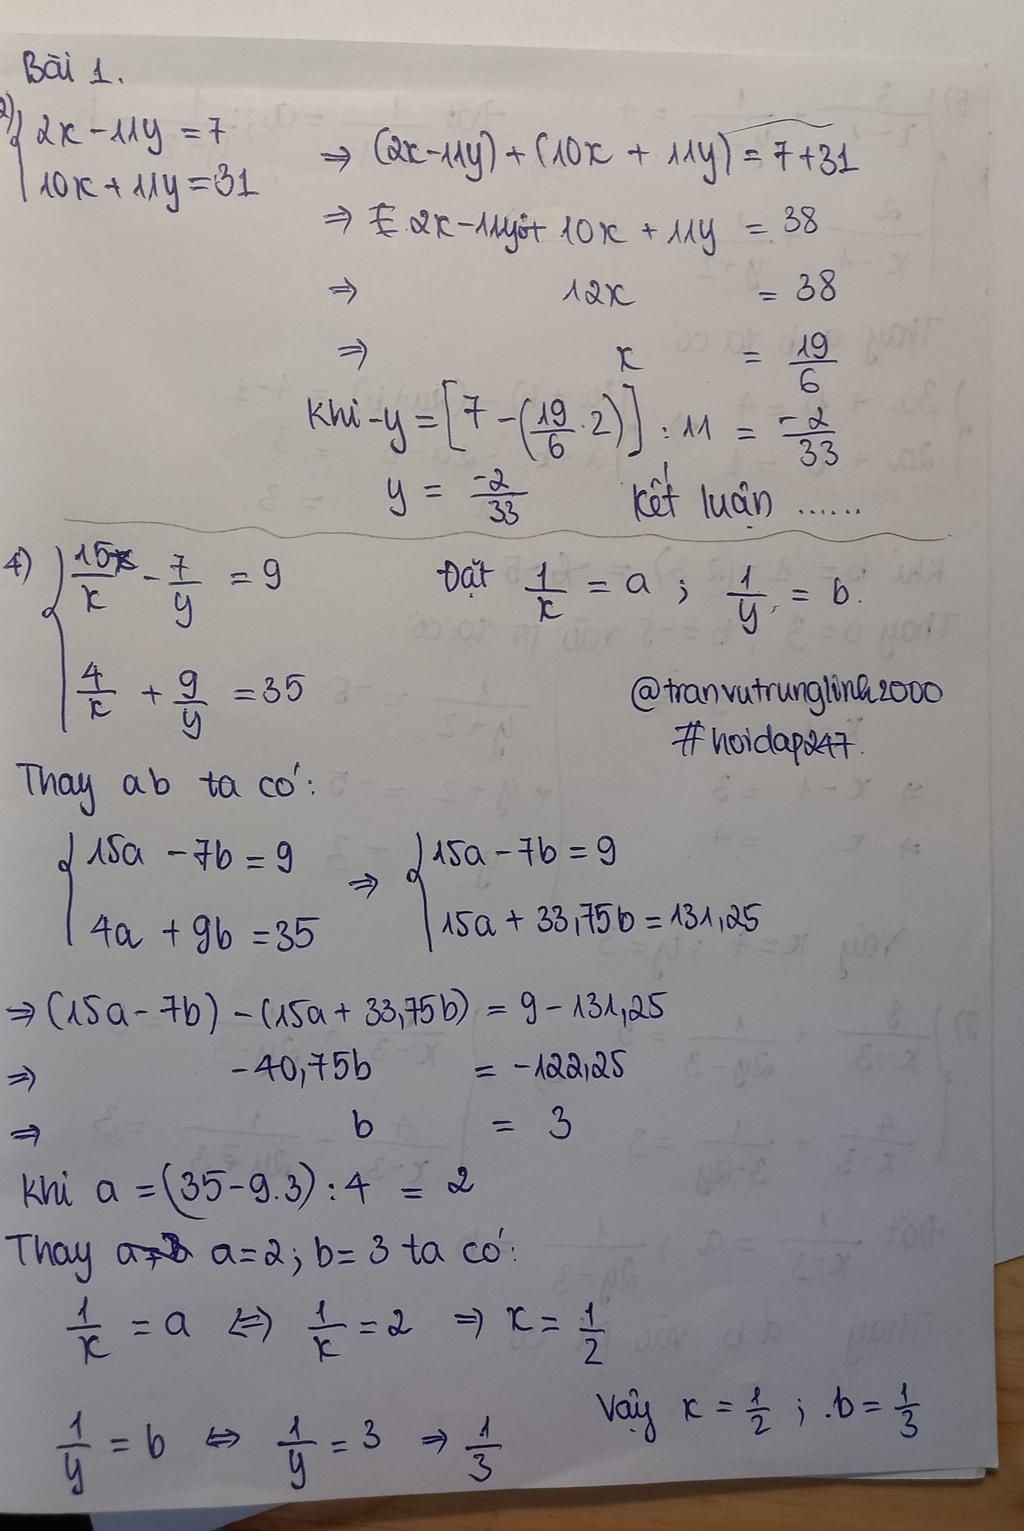 Bài 1.
2) { 2x - 11y = 7
10x + 11y = 31
⇒ (2x-11y) + (10x + 11y) = 7+31
⇒ 2x-11y + 10x + 11y = 38
⇒ 12x = 38
⇒ x = 19/6
Khi -y = [7 - (19/6 . 2)] : 11 = -2/33
y = -2/33 Kết luận ......
4) { 15/x - 7/y = 9 Đặt 1/x = a ; 1/y = b.
4/x + 9/y = 35
@tranvutrunglinh2000
#hoidap247.
Thay ab ta có:
{ 15a - 7b = 9 ⇒ { 15a - 7b = 9
4a + 9b = 35 15a + 33,75b = 131,25
⇒ (15a - 7b) - (15a + 33,75b) = 9 - 131,25
⇒ -40,75b = -122,25
⇒ b = 3
Khi a = (35-9.3) : 4 = 2
Thay a=2; b=3 ta có:
1/x = a ⇔ 1/x = 2 ⇒ x = 1/2
1/y = b ⇔ 1/y = 3 ⇒ 1/3
Vậy x = 1/2 ; .b = 1/3